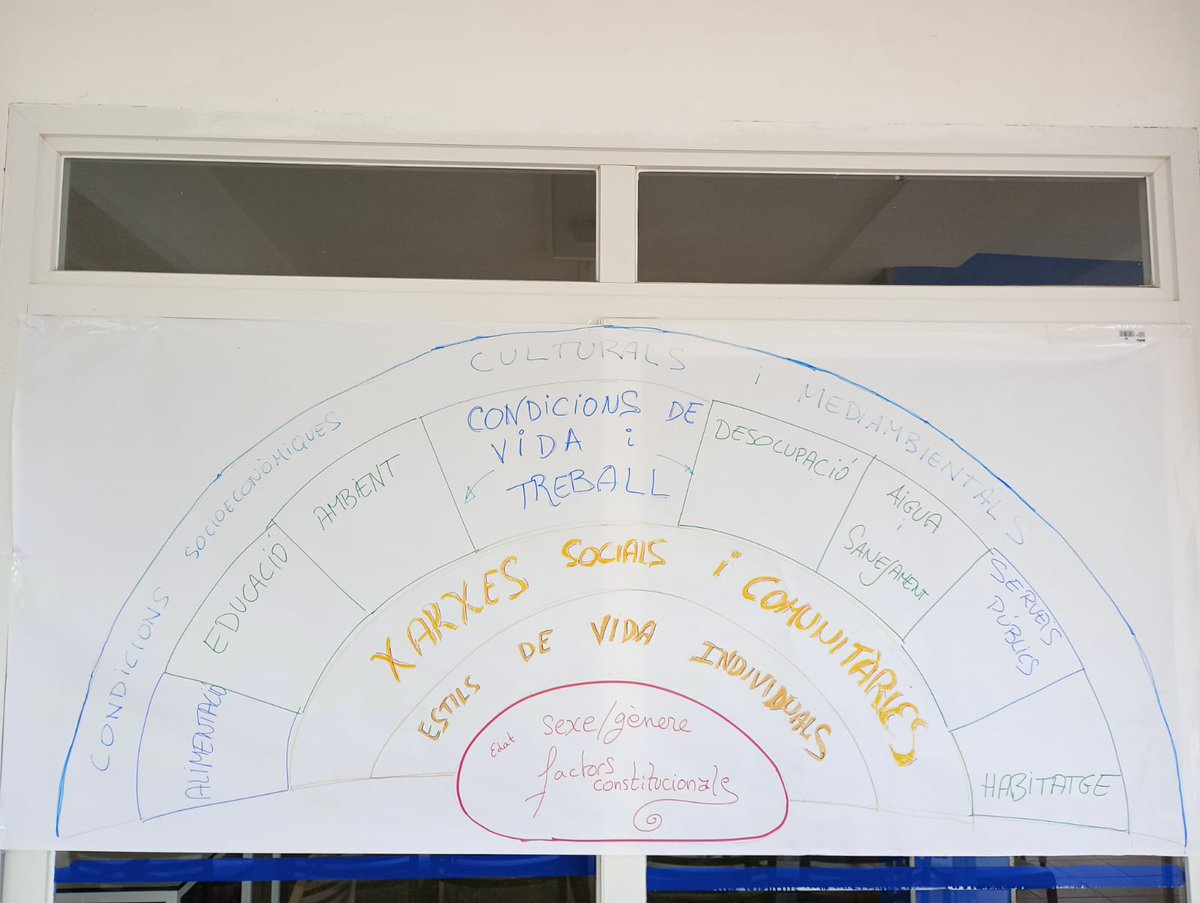 CONDICIONS SOCIOECONÒMIQUES CULTURALS i MEDIAMBIENTALS
CONDICIONS DE
VIDA i
TREBALL
ALIMENTACIÓ
EDUCACIÓ
AMBIENT
DESOCUPACIÓ
AIGUA
i
SANEJAMENT
SERVEIS
PÚBLICS
HABITATGE
XARXES SOCIALS i COMUNITÀRIES
ESTILS DE VIDA INDIVIDUALS
Edat sexe/gènere
factors
constitucionals